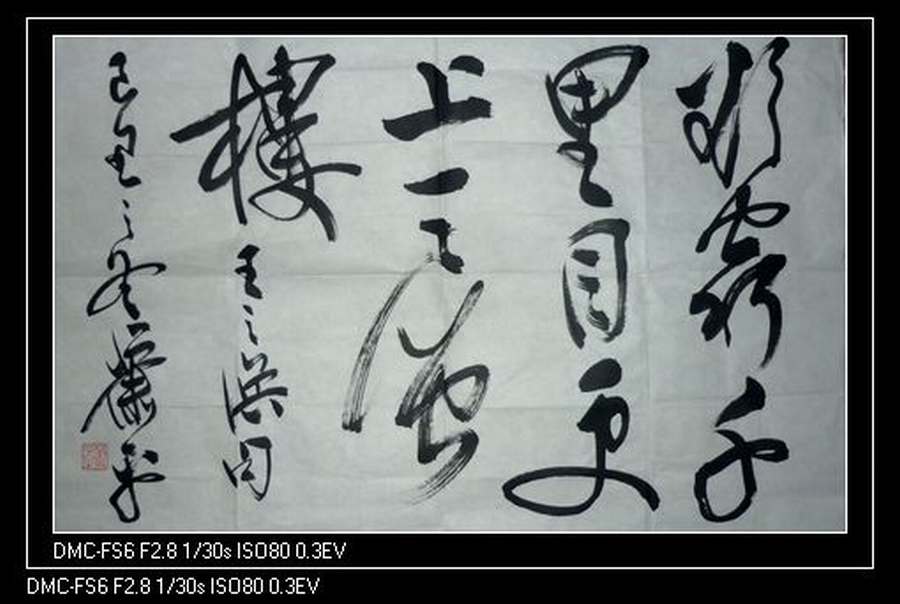 欲窮千
里目更
上一層
樓 王之渙句
己丑之冬
DMC-FS6 F2.8 1/30s ISO80 0.3EV
DMC-FS6 F2.8 1/30s ISO80 0.3EV